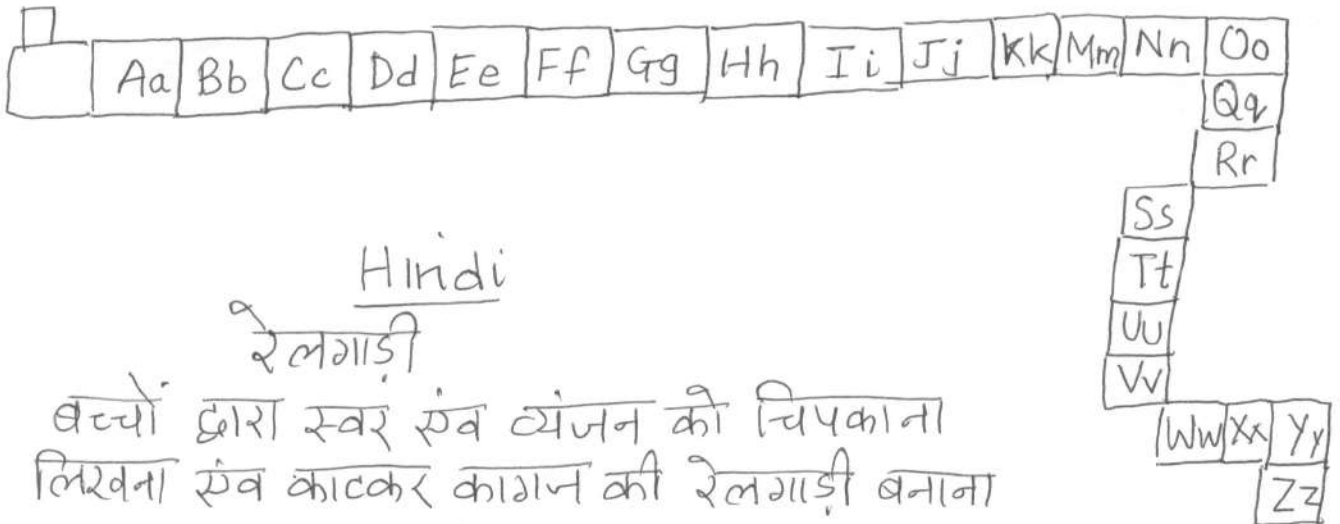 Aa Bb Cc Dd Ee Ff Gg Hh Ii Jj Kk Mm Nn Oo
Qq
Rr
Ss
Tt
Uu
Vv
Ww Xx Yy
Zz
Hindi
रेलगाड़ी
बच्चों द्वारा स्वर एंव व्यंजन को चिपकाना
लिखना एंव काटकर कागज की रेलगाड़ी बनाना